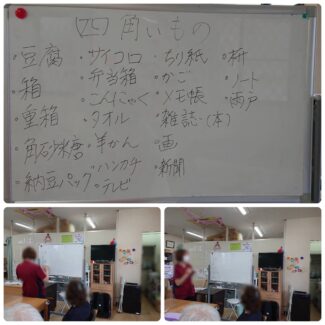 四角いもの
・豆腐
・箱
・重箱
・角砂糖
・納豆パック
・サイコロ
・弁当箱
・こんにゃく
・タオル
・羊かん
・ハンカチ
・テレビ
・ちり紙
・かご
・メモ帳
・雑誌・(本)
・画
・新聞
・枡
・ノート
・雨戸